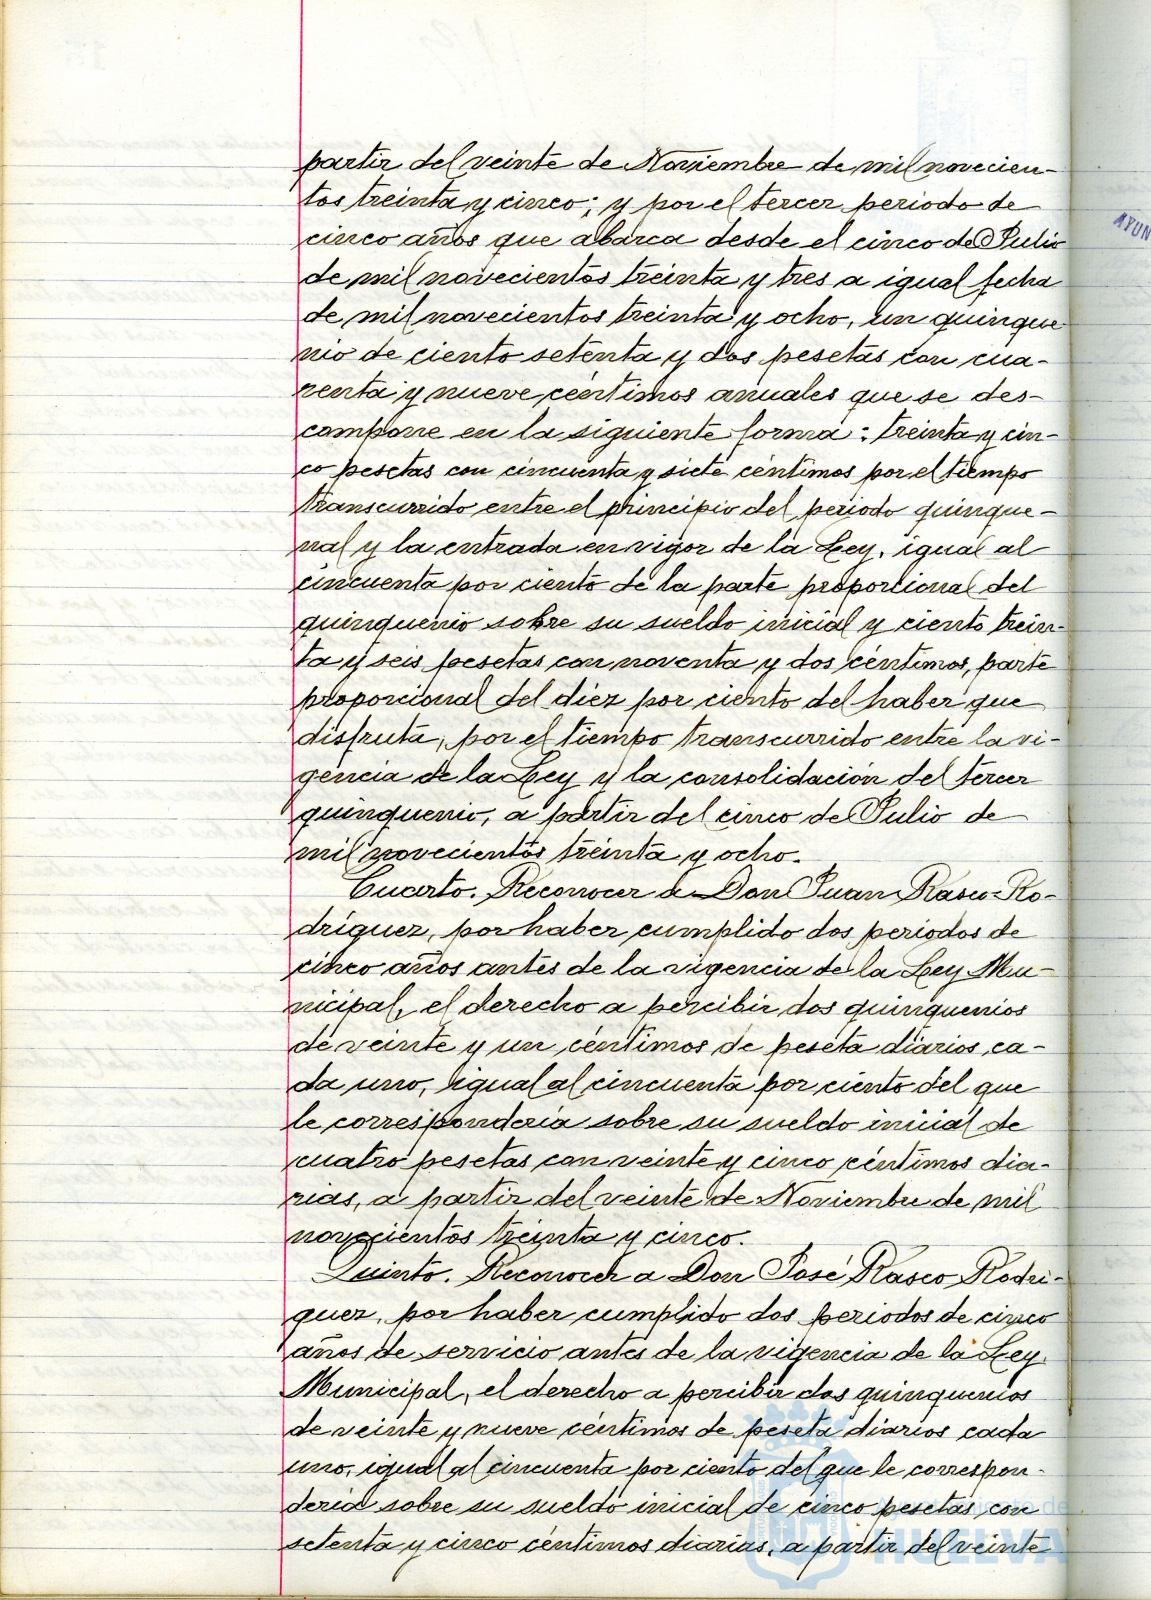 partir del veinte de Noviembre de mil novecien-
tos treinta y cinco; y por el tercer periodo de
cinco años que abarca desde el cinco de Julio
de mil novecientos treinta y tres a igual fecha
de mil novecientos treinta y ocho, un quinque
nio de ciento setenta y dos pesetas con cua-
renta y nueve céntimos anuales que se des-
compone en la siguiente forma: treinta y cin-
co pesetas con cincuenta y siete céntimos por el tiempo
transcurrido entre el principio del periodo quinque-
nal y la entrada en vigor de la Ley, igual al
cincuenta por ciento de la parte proporcional del
quinquenio sobre su sueldo inicial y ciento trein-
ta y seis pesetas con noventa y dos céntimos, parte
proporcional del diez por ciento del haber que
disfruta, por el tiempo transcurrido entre la vi-
gencia de la Ley y la consolidación del tercer
quinquenio, a partir del cinco de Julio de
mil novecientos treinta y ocho.
Cuarto. Reconocer a Don Juan Rasco Ro-
dríguez, por haber cumplido dos periodos de
cinco años antes de la vigencia de la Ley Mu-
nicipal, el derecho a percibir dos quinquenios
de veinte y un céntimos de peseta diarios, ca-
da uno, igual al cincuenta por ciento del que
le correspondería sobre su sueldo inicial de
cuatro pesetas con veinte y cinco céntimos dia-
rias, a partir del veinte de Noviembre de mil
novecientos treinta y cinco.
Quinto. Reconocer a Don José Rasco Rodrí-
guez, por haber cumplido dos periodos de cinco
años de servicio antes de la vigencia de la Ley
Municipal, el derecho a percibir dos quinquenios
de veinte y nueve céntimos de peseta diarios cada
uno, igual al cincuenta por ciento del que le correspon-
dería sobre su sueldo inicial de cinco pesetas con
setenta y cinco céntimos diarias, a partir del veinte
AYUN
HUELVA